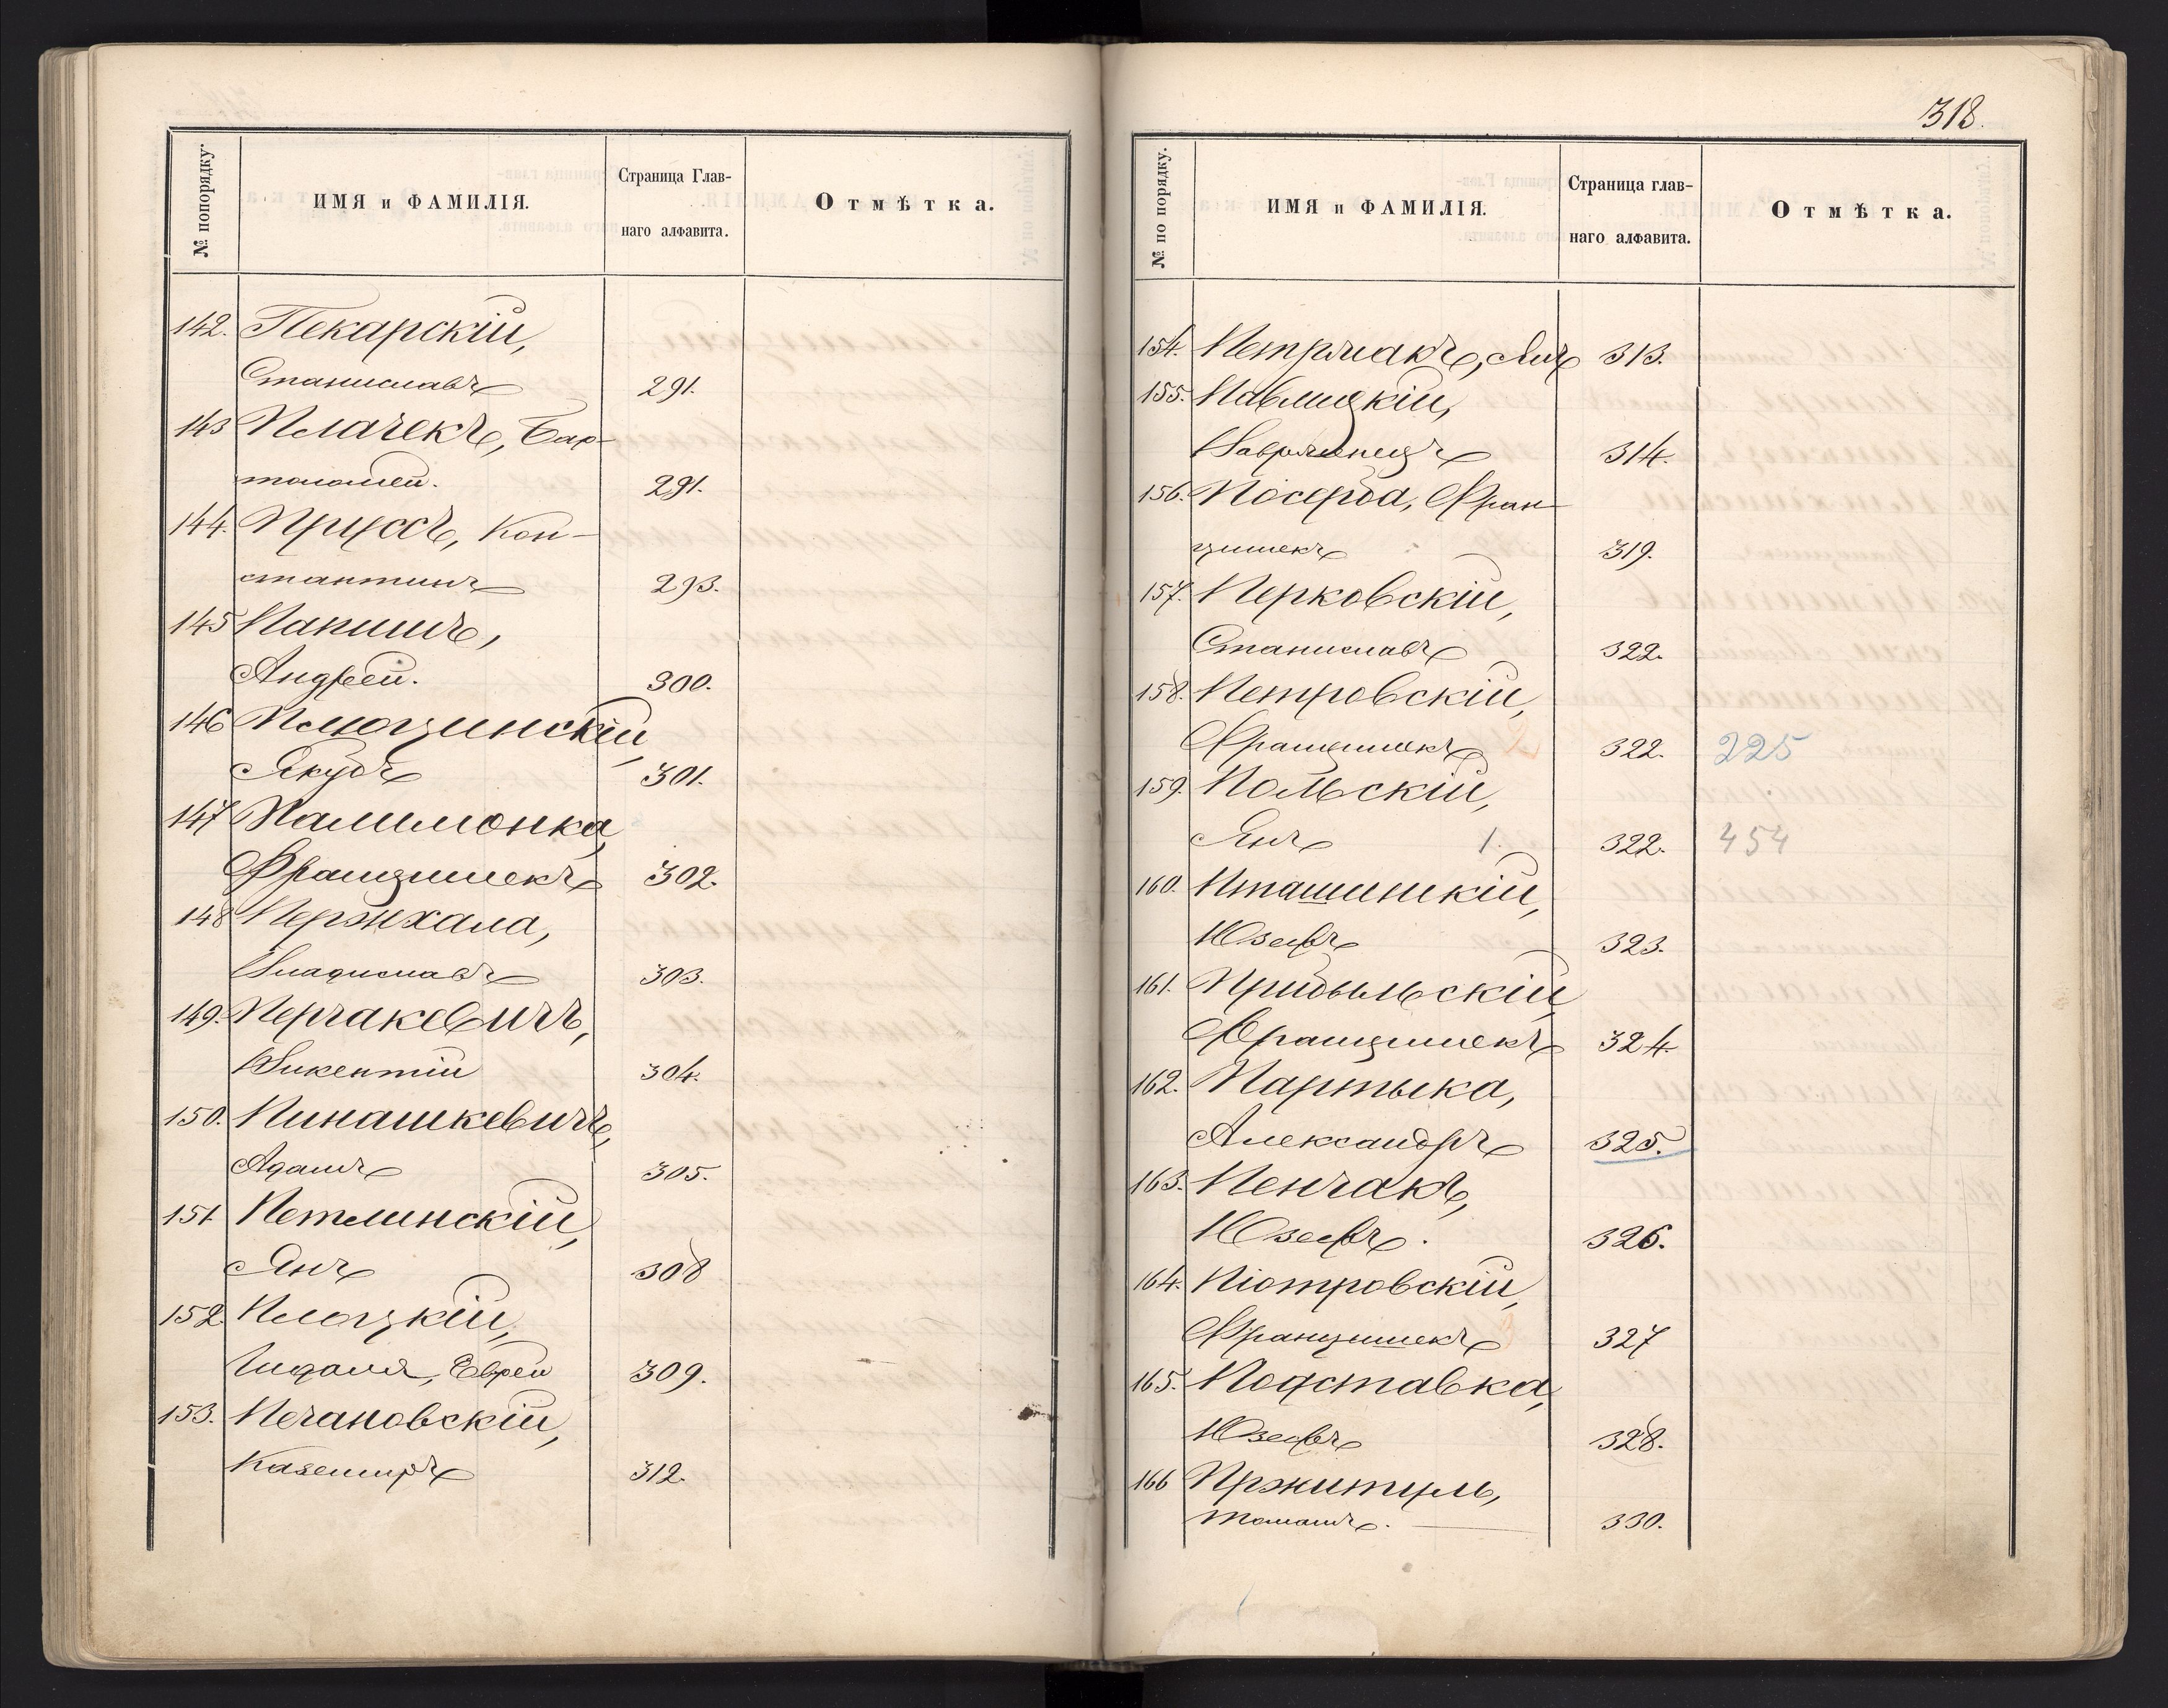 № попорядку.
ИМЯ и ФАМИЛІЯ.
Страница Глав-
наго алфавита.
Отмѣтка.
142. Пекарскій,
Станиславъ 291.
143 Плачекъ, Бар-
толомей. 291.
144. Пруссъ, Кон-
стантинъ 293.
145 Папишъ,
Андрей. 300.
146 Плюцинскій,
Якубъ 301.
147 Палимонка,
Францишекъ 302.
148 Пержхала,
Владиславъ 303.
149. Перчакевичъ,
Викентій 304.
150. Пинашкевичъ,
Адамъ 305.
151 Петлинскій,
Янъ 308
152. Плоцкій,
Еврей 309.
153. Печановскій,
Каземиръ 312.
318.
№ по порядку.
ИМЯ и ФАМИЛІЯ.
Страница глав-
наго алфавита.
Отмѣтка.
154. Петрчакъ, Янъ 313.
155. Павлицкій,
Вавржинецъ 314.
156. Посерба, Фран-
цишекъ 319.
157. Перковскій,
Станиславъ 322.
158. Петровскій,
Францишекъ 2 322. 225
159. Польскій,
Янъ 1. 322. 454
160. Пташинскій,
Юзефъ 323.
161. Прибыльскій,
Францишекъ 324.
162. Партыка,
Александръ 325.
163. Пенчакъ,
Юзефъ. 326.
164. Піотровскій,
Францишекъ 327
165. Подставка,
Юзефъ 328.
166 Пржитуль,
Томашъ. 330.